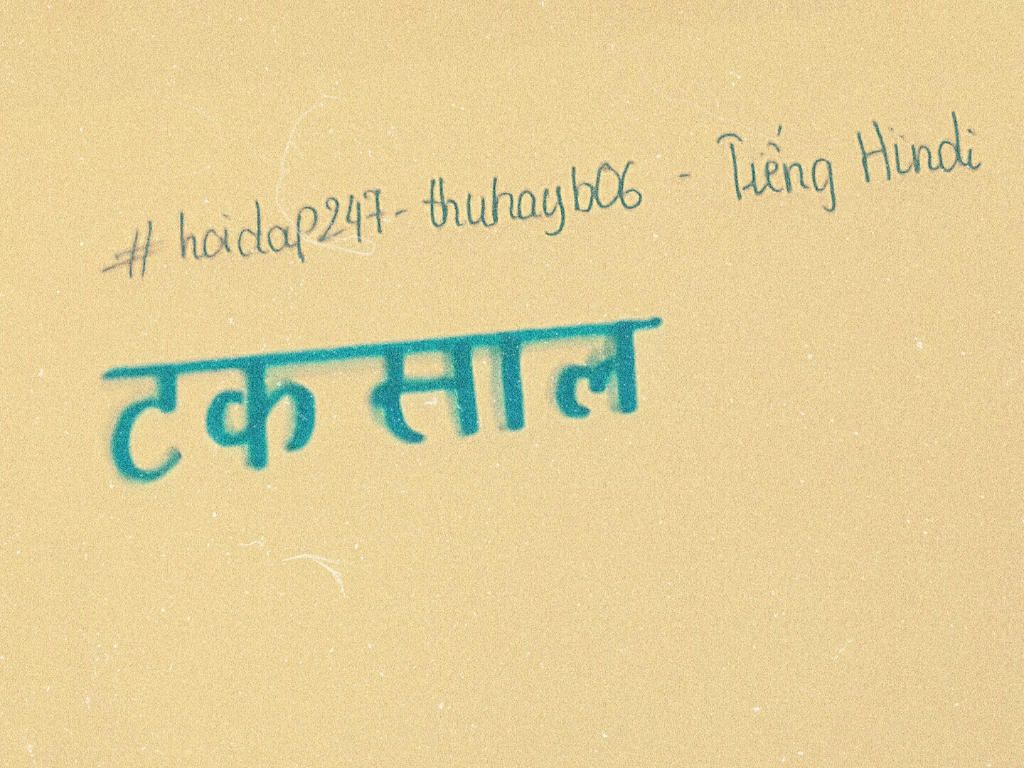 # hoidap247 - thuhayb06 - Tiếng Hindi
टकसाल